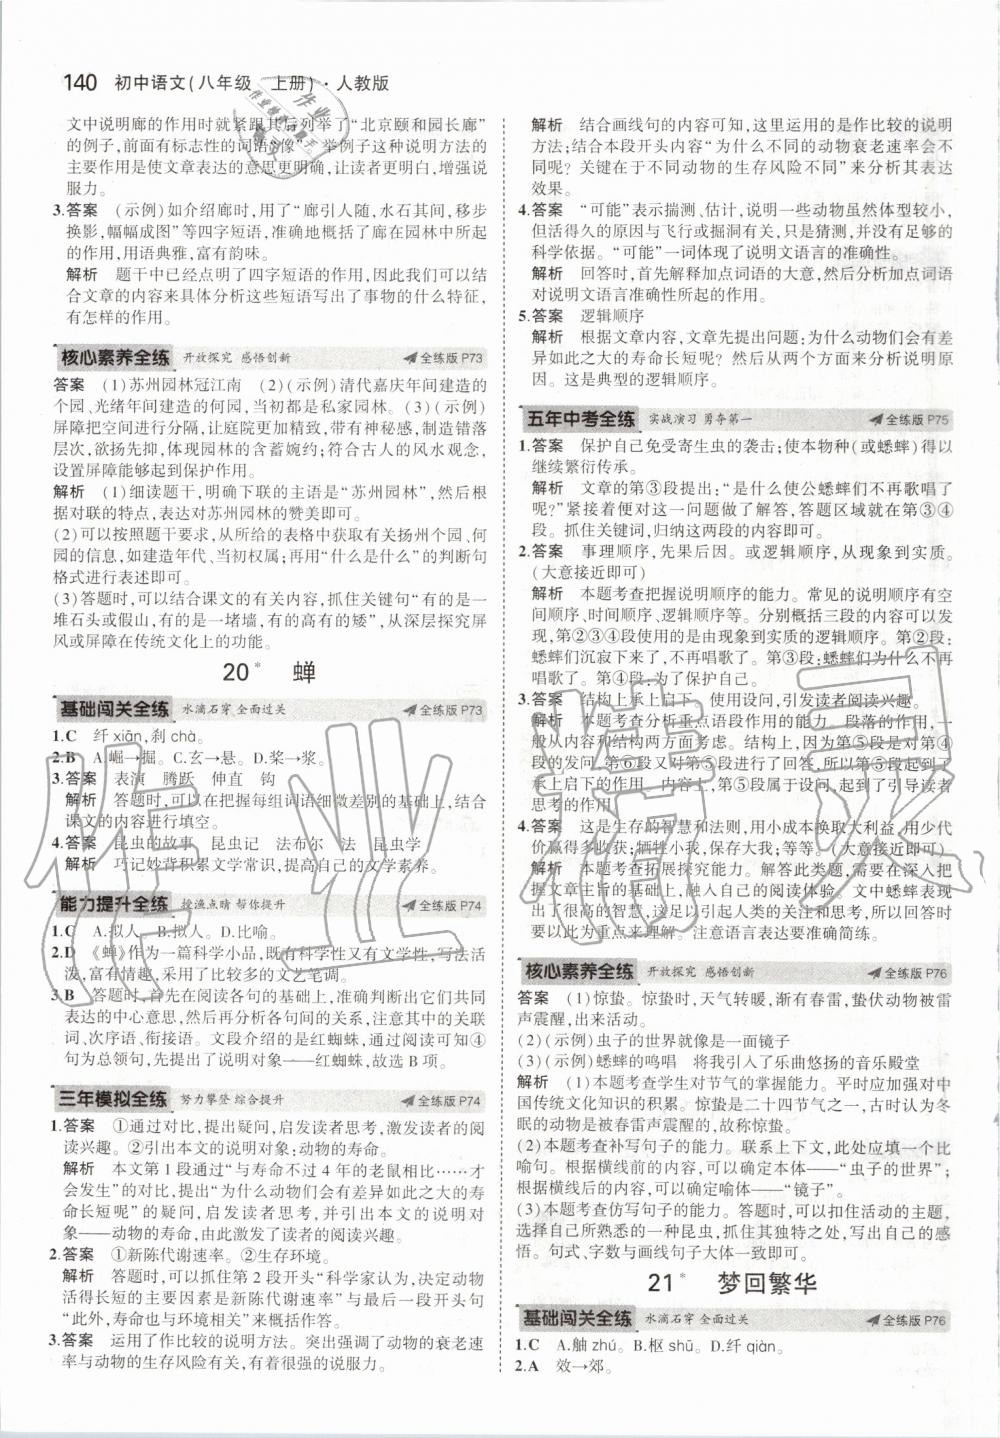 140 初中语文(八年级 上册)·人教版
文中说明廊的作用时就紧跟其后列举了“北京颐和园长廊”
的例子,前面有标志性的词语“像”。举例子这种说明方法的
主要作用是使文章表达的意思更明确,让读者更明白,增强说
服力。
3.答案 (示例)如介绍廊时,用了“廊引人随,水石其间,移步
换影,幅幅成图”等四字短语,准确地概括了廊在园林中所起
的作用,用语典雅,富有韵味。
解析 题干中已经点明了四字短语的作用,因此我们可以结
合文章的内容来具体分析这些短语写出了事物的什么特征,
有怎样的作用。
核心素养全练 开放探究 感悟创新 全练版 P73
答案 (1)苏州园林冠江南 (2)(示例)清代嘉庆年间建造的
个园、光绪年间建造的何园,当初都是私家园林。(3)(示例)
屏障把空间进行分隔,让庭院更加精致,带有神秘感,制造错落
层次,欲扬先抑,体现园林的含蓄婉约;符合古人的风水观念,
设置屏障能够起到保护作用。
解析 (1)细读题干,明确下联的主语是“苏州园林”,根据
对联的特点,表达对苏州园林的赞美即可。
(2)可以按照题干要求,从所给的表格中获取有关扬州个园、何
园的信息,如建造年代、当初权属;再用“什么是什么”的判断句
格式进行表述即可。
(3)答题时,可以结合课文的有关内容,抓住关键句“有的是一
堆石头或假山,有的是一堵墙,有的高有的矮”,从深层探究屏
风或屏障在传统文化上的功能。
20* 蝉
基础闯关全练 水滴石穿 全面过关 全练版 P73
1.C 纤 xiān,刹 chà。
2.B A.崛→掘。C.玄→悬。D.桨→浆。
3.答案 表演 腾跃 伸直 钩
解析 答题时,可以在把握每组词语细微差别的基础上,结合
课文的内容进行填空。
4.答案 昆虫的史诗 昆虫记 法布尔 法 昆虫学
解析 巧记妙背积累文学常识,提高自己的文学素养。
能力提升全练 授渔点睛 帮你提升 全练版 P74
1.C A.拟人。B.拟人。D.比喻。
2.D 《蝉》作为一篇科学小品,既有科学性又有文学性,写法活
泼,富有情趣,采用了比较多的文艺笔调。
3.B 答题时,首先在阅读各句的基础上,准确判断出它们共同
表达的中心意思,然后再分析各句间的关系,注意其中的关联
词、次序语、衔接语。文段介绍的是红蜘蛛,通过阅读可知④
句为总领句,先提出了说明对象——红蜘蛛,故选 B 项。
三年模拟全练 努力攀登 综合提升 全练版 P74
1.答案 ①通过对比,提出疑问,启发读者思考,激发读者的阅
读兴趣。②引出本文的说明对象:动物的寿命。
解析 本文第 1 段通过“与寿命不过 4 年的老鼠相比……才
会发生”的对比,提出“为什么动物们会有差异如此之大的寿
命长短呢”的疑问,启发读者思考,并引出本文的说明对
象——动物的寿命,由此激发了读者的阅读兴趣。
2.答案 ①新陈代谢速率。②生存环境。
解析 答题时,可以抓住第 2 段开头“科学家认为,决定动物
活得长短的主要因素是新陈代谢速率”与最后一段开头句
“此外,寿命也与环境相关”来概括作答。
3.答案 运用了作比较的说明方法。突出强调了动物的衰老速
率与动物的生存风险有关,增强了说服力。
解析 结合画线句的内容可知,这里运用的是作比较的说明
方法;结合本段开头内容“为什么不同的动物衰老速率会不
同? 关键在于不同动物的生存风险不同”来分析其表达
效果。
4.答案 “可能”表示揣测、估计,说明一些动物虽然体型较小,
但活得久的原因与飞行或掘洞有关,只是猜测,并没有足够的
科学依据。“可能”一词体现了说明文语言的准确性。
解析 回答时,首先解释加点词语的大意,然后分析加点词语
对说明文语言准确性所起的作用。
5.答案 逻辑顺序
解析 根据文章内容,文章先提出问题:为什么动物们会有差
异如此之大的寿命长短呢? 然后从两个方面来分析其原
因。这是典型的逻辑顺序。
五年中考全练 实战演习 勇夺第一 全练版 P75
1.答案 保护自己免受寄生虫的袭击;使本物种(或蟋蟀)得以
继续繁衍传承。
解析 文章的第③段提出:“是什么使公蟋蟀们不再歌唱了
呢?”紧接着便对这一问题做了解答,答题区域就在第③④
段。抓住关键词,归纳这两段的内容即可。
2.答案 事理顺序,先果后因。或逻辑顺序,从现象到实质。
(大意接近即可)
解析 本题考查把握说明顺序的能力。常见的说明顺序有空
间顺序、时间顺序、逻辑顺序等。分别概括三段的内容可以发
现,第②③④段使用的是由现象到实质的逻辑顺序。第②段:
蟋蟀们沉寂下来了,不再唱歌了。第③段:蟋蟀们为什么不再
唱歌了。第④段:为了保护自己。
3.答案 结构上,承上启下。使用设问,引发读者阅读兴趣。
解析 本题考查分析重点语段作用的能力。段落的作用,一
般从内容和结构两方面考虑。结构上,因为第⑤段是对第④
段的发问,第⑥段又对第⑤段进行了回答,所以第⑤段起到了
承上启下的作用。内容上,第⑤段属于设问,起到了引导读者
思考的作用。
4.答案 这是生存的智慧和法则,用小成本换取大利益,用少代
价赢得多收获;牺牲小我,保存大我;等等。(大意接近即可)
解析 本题考查拓展探究能力。此类题,需要在深入把
握文章主旨的基础上,融入自己的阅读体验。文中蟋蟀表现
出了很高的智慧,这足以引起人类的关注和思考,所以回答时
要以此为重点来理解。注意语言表达要准确简练。
核心素养全练 开放探究 感悟创新 全练版 P76
答案 (1)惊蛰。惊蛰时,天气转暖,渐有春雷,蛰伏动物被雷
声震醒,出来活动。
(2)(示例)虫子的世界就像是一面镜子
(3)(示例)蟋蟀的鸣唱 将我引入了乐曲悠扬的音乐殿堂
解析 (1)本题考查学生对节气的掌握能力。平时应加强对中
国传统文化知识的积累。惊蛰是二十四节气之一,古时认为冬
眠的昆虫被春雷声震醒,故称惊蛰。
(2)本题考查补写句子的能力。联系上下文,此处应填一个比
喻句。根据横线前的内容,可以确定本体——“虫子的世界”;
根据横线后的内容,可以确定喻体——“镜子”。
(3)本题考查仿写句子的能力。答题时,可以扣住活动的主题,
选择自己所熟悉的一种昆虫,抓住其独特之处,写出自己的感
悟。句式、字数与画线句子大体一致即可。
21* 梦回繁华
基础闯关全练 水滴石穿 全面过关 全练版 P76
1.C A.舳 zhú。B.枢 shū。D.纤 qiàn。
2.A 效→郊。